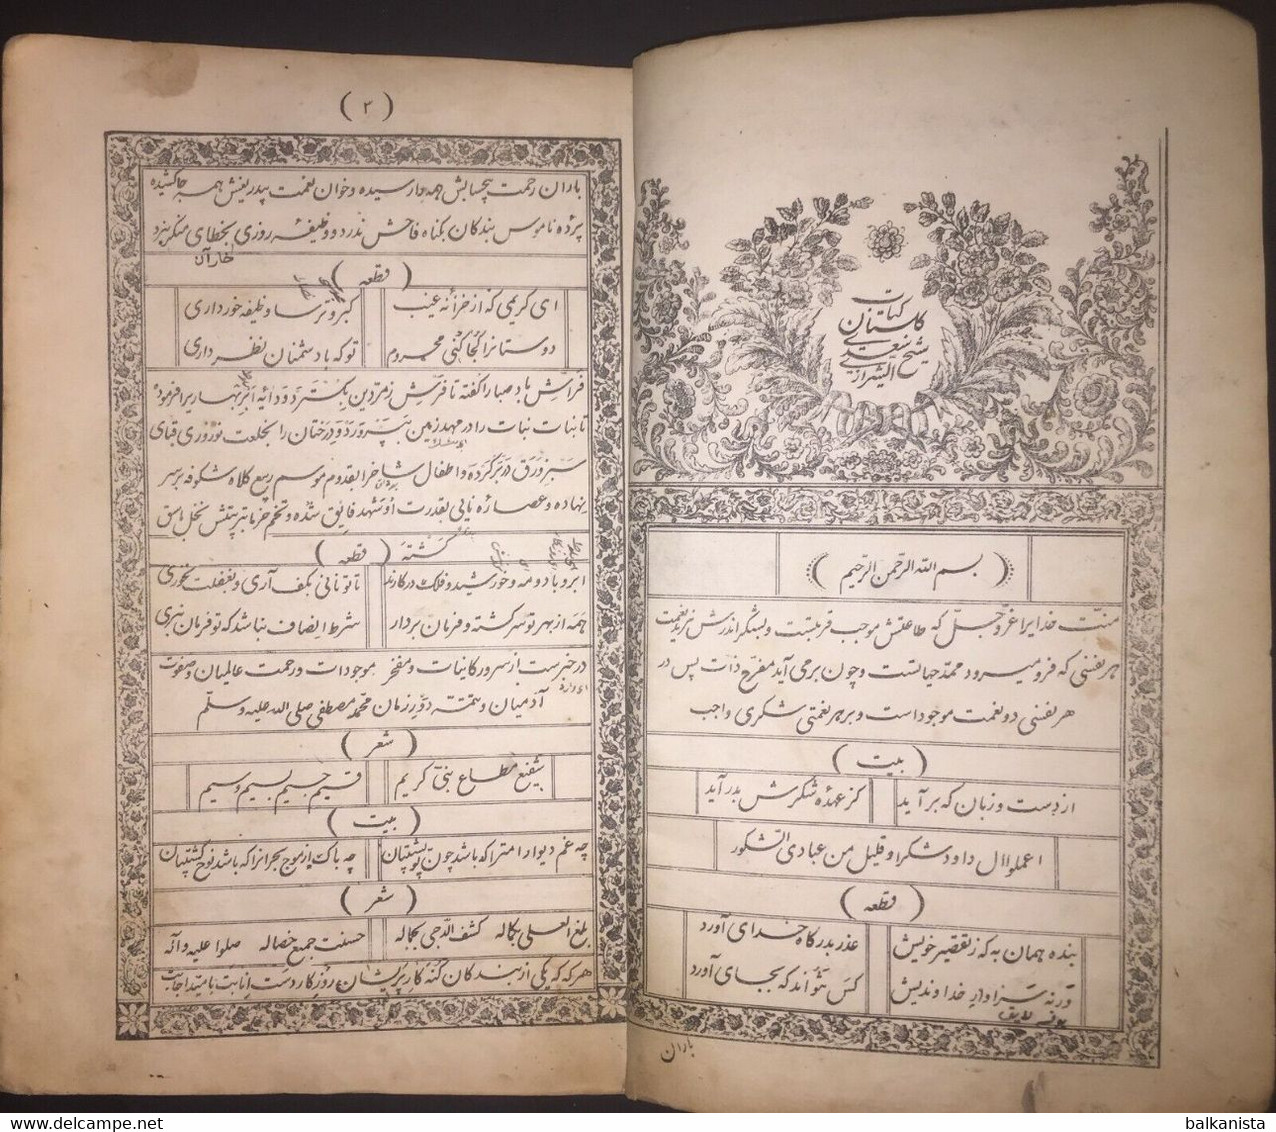 کتاب
گلستان
سعدی
شیخ
الشیرازی
( بسم الله الرحمن الرحیم )
منت خدایرا عزوجل که طاعتش موجب قربتست و بشکر اندرش مزید نعمت
هر نفسی که فرو میرود ممد حیاتست و چون برمی آید مفرح ذات پس در
هر نفسی دو نعمت موجود است و بر هر نعمتی شکری واجب
( بیت )
از دست و زبان که برآید کز عهدهٔ شکرش بدر آید
اعملوا ال داود شکرا و قلیل من عبادی الشکور
( قطعه )
بنده همان به که ز تقصیر خویش عذر بدرگاه خدای آورد
ورنه سزاوار خداوندیش کس نتواند که بجای آورد
باران
( ۲ )
باران رحمت بیحسابش همه جا رسیده و خوان نعمت بیدریغش همه جا کشیده
پردهٔ ناموس بندگان بگناه فاحش ندرد و وظیفهٔ روزی بخطای منکر نبرد
( قطعه )
ای کریمی که از خزانه غیب گبر و ترسا وظیفه خور داری
دوستانرا کجا کنی محروم تو که با دشمنان نظر داری
فراش باد صبا را گفته تا فرش زمردین بگسترد و دایهٔ ابر بهاریرا فرموده
تا بنات نبات را در مهد زمین بپرورد و درختان را بخلعت نوروزی قبای
سبز ورق در بر کرده و اطفال شاخ را بقدوم موسم ربیع کلاه شکوفه بر سر
نهاده و عصارهٔ نایی بقدرت او شهد فایق شده و تخم خرما بتربیتش نخل باسق
گشته ( قطعه )
ابر و باد و مه و خورشید و فلک در کارند تا تو نانی بکف آری و بغفلت نخوری
همه از بهر تو سرگشته و فرمان بردار شرط انصاف نباشد که تو فرمان نبری
در خبرست از سرور کاینات و مفخر موجودات و رحمت عالمیان و صفوت
آدمیان و تتمهٔ دور زمان محمد مصطفی صلی الله علیه وسلم
( شعر )
شفیع مطاع نبی کریم قسیم جسیم بسیم وسیم
( بیت )
چه غم دیوار امترا که باشد چون تو پشتیبان چه باک از موج بحر انرا که باشد نوح کشتیبان
( شعر )
بلغ العلی بکماله کشف الدجی بجماله حسنت جمیع خصاله صلوا علیه وآله
هرگه که یکی از بندگان گنه کار پریشان روزگار دست انابت بامید اجابت
balkanista